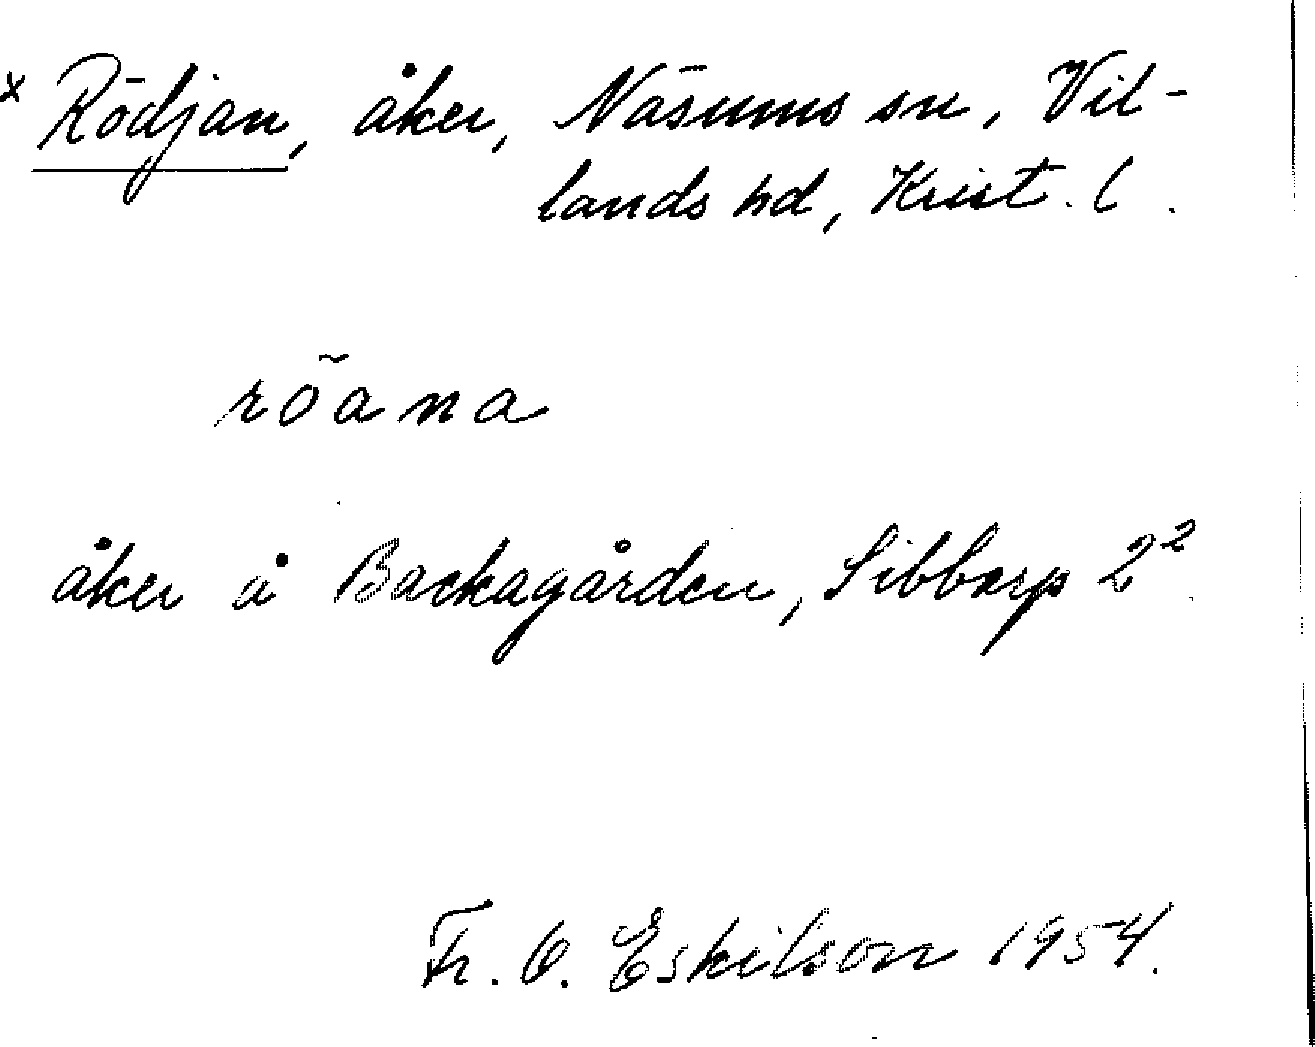 x Rödjan, åker, Näsums sn, Vil-
lands hd, Krist. l.
röana
åker å Backagården, Sibbarp 2²
Fr. O. Eskilson 1954.